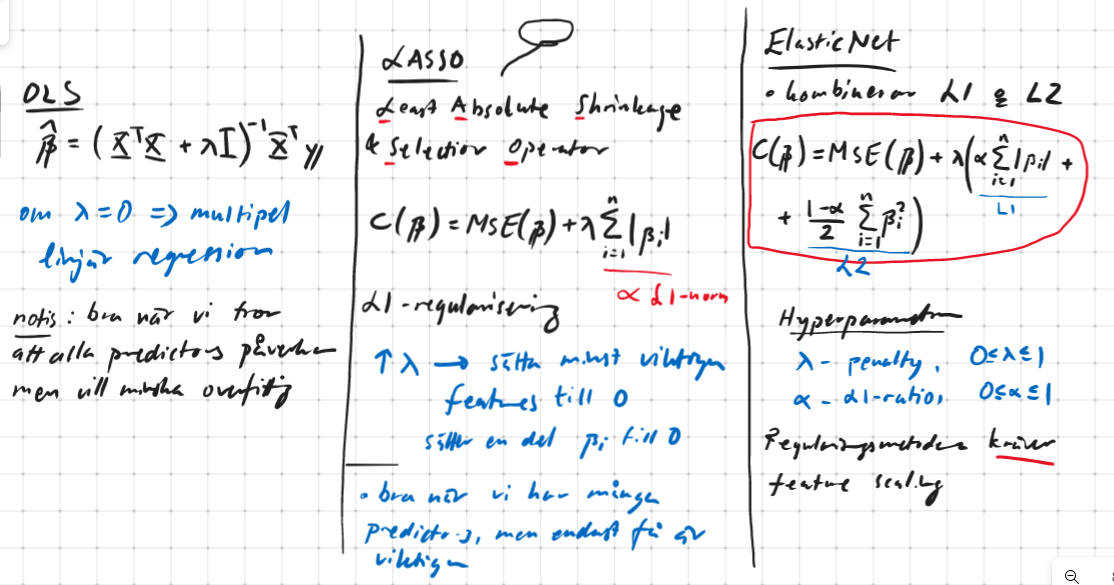 OLS
β̂ = (XᵀX + λI)⁻¹Xᵀy
om λ=0 => multipel
linjär regression
notis: bra när vi tror
att alla predictors påverkar
men vill minska overfitting
LASSO
Least Absolute Shrinkage
& Selection Operator
C(β) = MSE(β) + λ Σ|βᵢ|
n
i=1
∝ L1-norm
L1-regularisering
↑ λ → sätta minst viktiga
features till 0
sätter en del βᵢ till 0
• bra när vi har många
predictors, men endast få är
viktiga
ElasticNet
• kombinerar L1 & L2
C(β) = MSE(β) + λ(α Σⁿᵢ₌₁ |βᵢ| +
L1
+ (1-α)/2 Σⁿᵢ₌₁ βᵢ²)
L2
Hyperparametrar
λ - penalty, 0≤λ≤1
α - L1-ratio, 0≤α≤1
Regulariseringsmetoder kräver
feature scaling